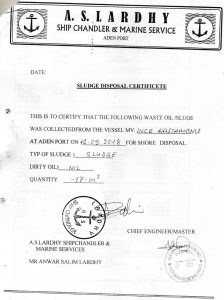 A. S. LARDHY
SHIP CHANDLER & MARINE SERVICE
ADEN PORT
DATE:
SLUDGE DISPOSAL CERTIFICETE
THIS IS TO CERTIFY THAT THE FOLLOWING WASTE OIL /SLUGE
WAS COLLECTEDFROM THE VESSEL MV. INCE KASTAMONU
AT ADEN PORT ON 12.09.2018 FOR SHORE DISPOSAL
TYP OF SLUDGE) SLUDGE
DIRTY OIL) NIL
QUANTITY -17- M³
CHIEF ENGINEER/MASTER
A.S LARDHY SHIPCHANDLER &
MARINE SERVICES
MR ANWAR SALIM LARDHY